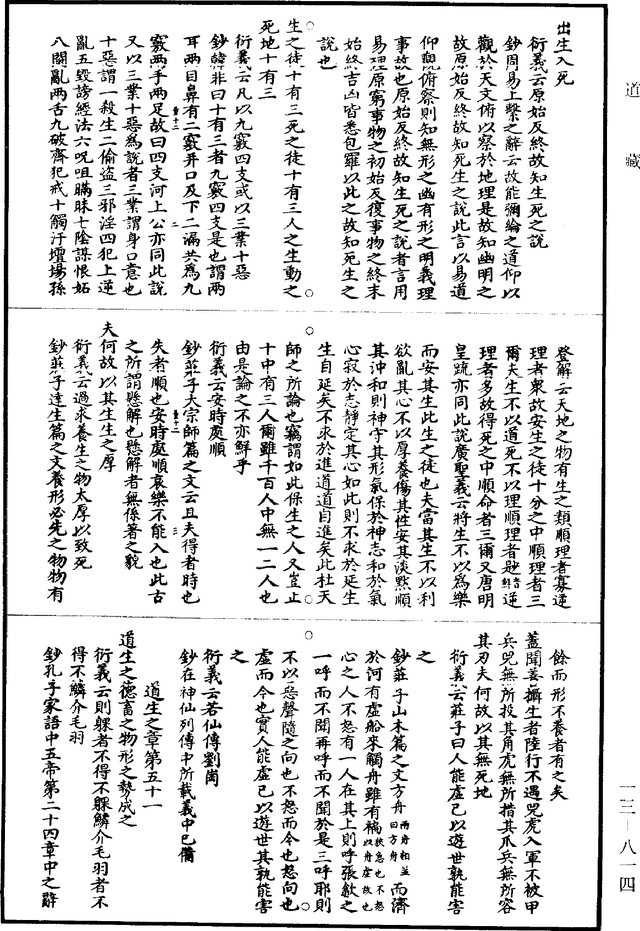 道藏
出生入死
衍義云原始反終故知生死之說
鈔周易上繫之辭云故能彌綸之道仰以
觀於天文俯以察於地理是故知幽明之
故原始反終故知死生之說此言以易道
仰觀俯察則知無形之幽有形之明義理
事故也原始反終故知生死之說者言用
易理原窮事物之初始反復事物之終末
始終吉凶皆悉包羅以此之故知死生之
說也
生之徒十有三死之徒十有三人之生動之
死地十有三
衍義云凡以九竅四支或以三業十惡
鈔韓非曰十有三者九竅四支是也謂兩
耳兩目鼻有二竅并口及下二漏共為九
竅兩手兩足故曰四支河上公亦同此說
又以三業十惡為說者三業謂身口意也
十惡謂一殺生二偷盜三邪淫四犯上逆
亂五毀謗經法六呪咀瞞昧七陰謀恨妬
八鬭亂兩舌九破齋犯戒十觸汙壇場孫
登解云天地之物有生之類順理者寡違
理者衆故安生之徒十分之中順理者三
爾夫生不以道死不以理順理者尟逆
理者多故得死之中順命者三爾又唐明
皇疏亦同此說廣聖義云將生不以為樂
而安其生此生之徒也夫當其生不以利
欲亂其心不以厚養傷其性安其淡默順
其沖和則神守其形氣保於神志和於氣
心寂於志靜定其心如此則不求於延生
生自延矣不求於進道道自進矣此杜天
師之所論也竊謂如此保生之人又豈止
十中有三人爾雖千百人中無一二人也
由是論之不亦鮮乎
衍義云安時處順
鈔莊子大宗師篇之文云且夫得者時也
失者順也安時處順哀樂不能入也此古
之所謂懸解也懸解者無係著之貌
夫何故以其生生之厚
衍義云過求養生之物太厚以致死
鈔莊子達生篇之文養形必先之物物有
餘而形不養者有之矣
蓋聞善攝生者陸行不遇兕虎入軍不被甲
兵兕無所投其角虎無所措其爪兵無所容
其刃夫何故以其無死地
衍義云莊子曰人能虛己以遊世孰能害
之
鈔莊子山木篇之文方舟兩舟相並曰方舟而濟
於河有虛船來觸舟雖有褊狹急也不怒以舟虛故也
心之人不怒有一人在其上則呼張歙之
一呼而不聞再呼而不聞於是三呼耶則
不以惡聲隨之向也不怒而今也怒向也
虛而今也實人能虛己以遊世其孰能害
之
衍義云若仙傳劉岡
鈔在神仙列傳中所載義中已備
道生之章第五十一
道生之德畜之物形之勢成之
衍義云則躶者不得不躶鱗介毛羽者不
得不鱗介毛羽
鈔孔子家語中五帝第二十四章中之辭
一三—八一四